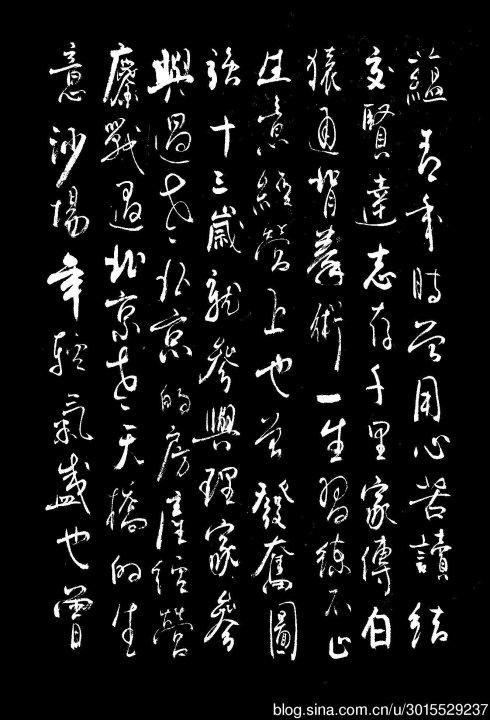 蕴青年時曾用心苦讀結
交賢達志存千里家傳白
猿通背拳術一生習練不止
生意經營上也曾發奮圖
强十三歲就參與理家參
與過老北京的房產經營
鏖戰過北京老天橋的生
意沙場年輕氣盛也曾
blog.sina.com.cn/u/3015529237